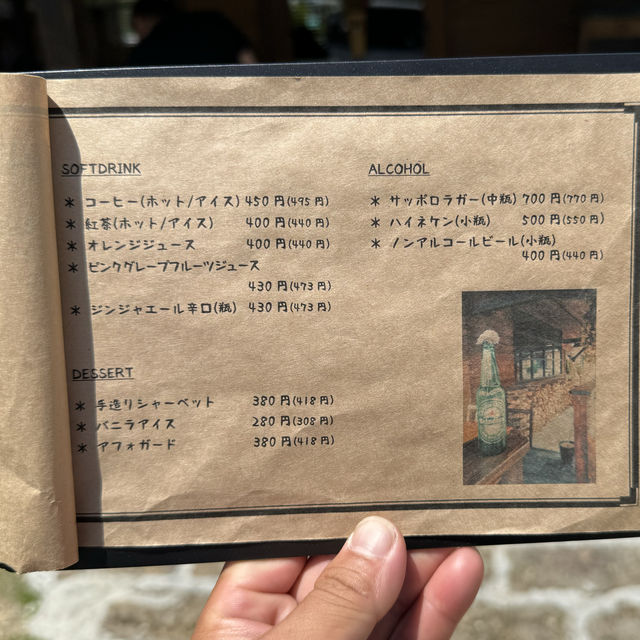 SOFTDRINK
* コーヒー(ホット/アイス) 450円(495円)
* 紅茶(ホット/アイス) 400円(440円)
* オレンジジュース 400円(440円)
* ピンクグレープフルーツジュース
430円(473円)
* ジンジャエール辛口(瓶) 430円(473円)
DESSERT
* 手造りシャーベット 380円(418円)
* バニラアイス 280円(308円)
* アフォガード 380円(418円)
ALCOHOL
* サッポロラガー(中瓶) 700円(770円)
* ハイネケン(小瓶) 500円(550円)
* ノンアルコールビール(小瓶)
400円(440円)